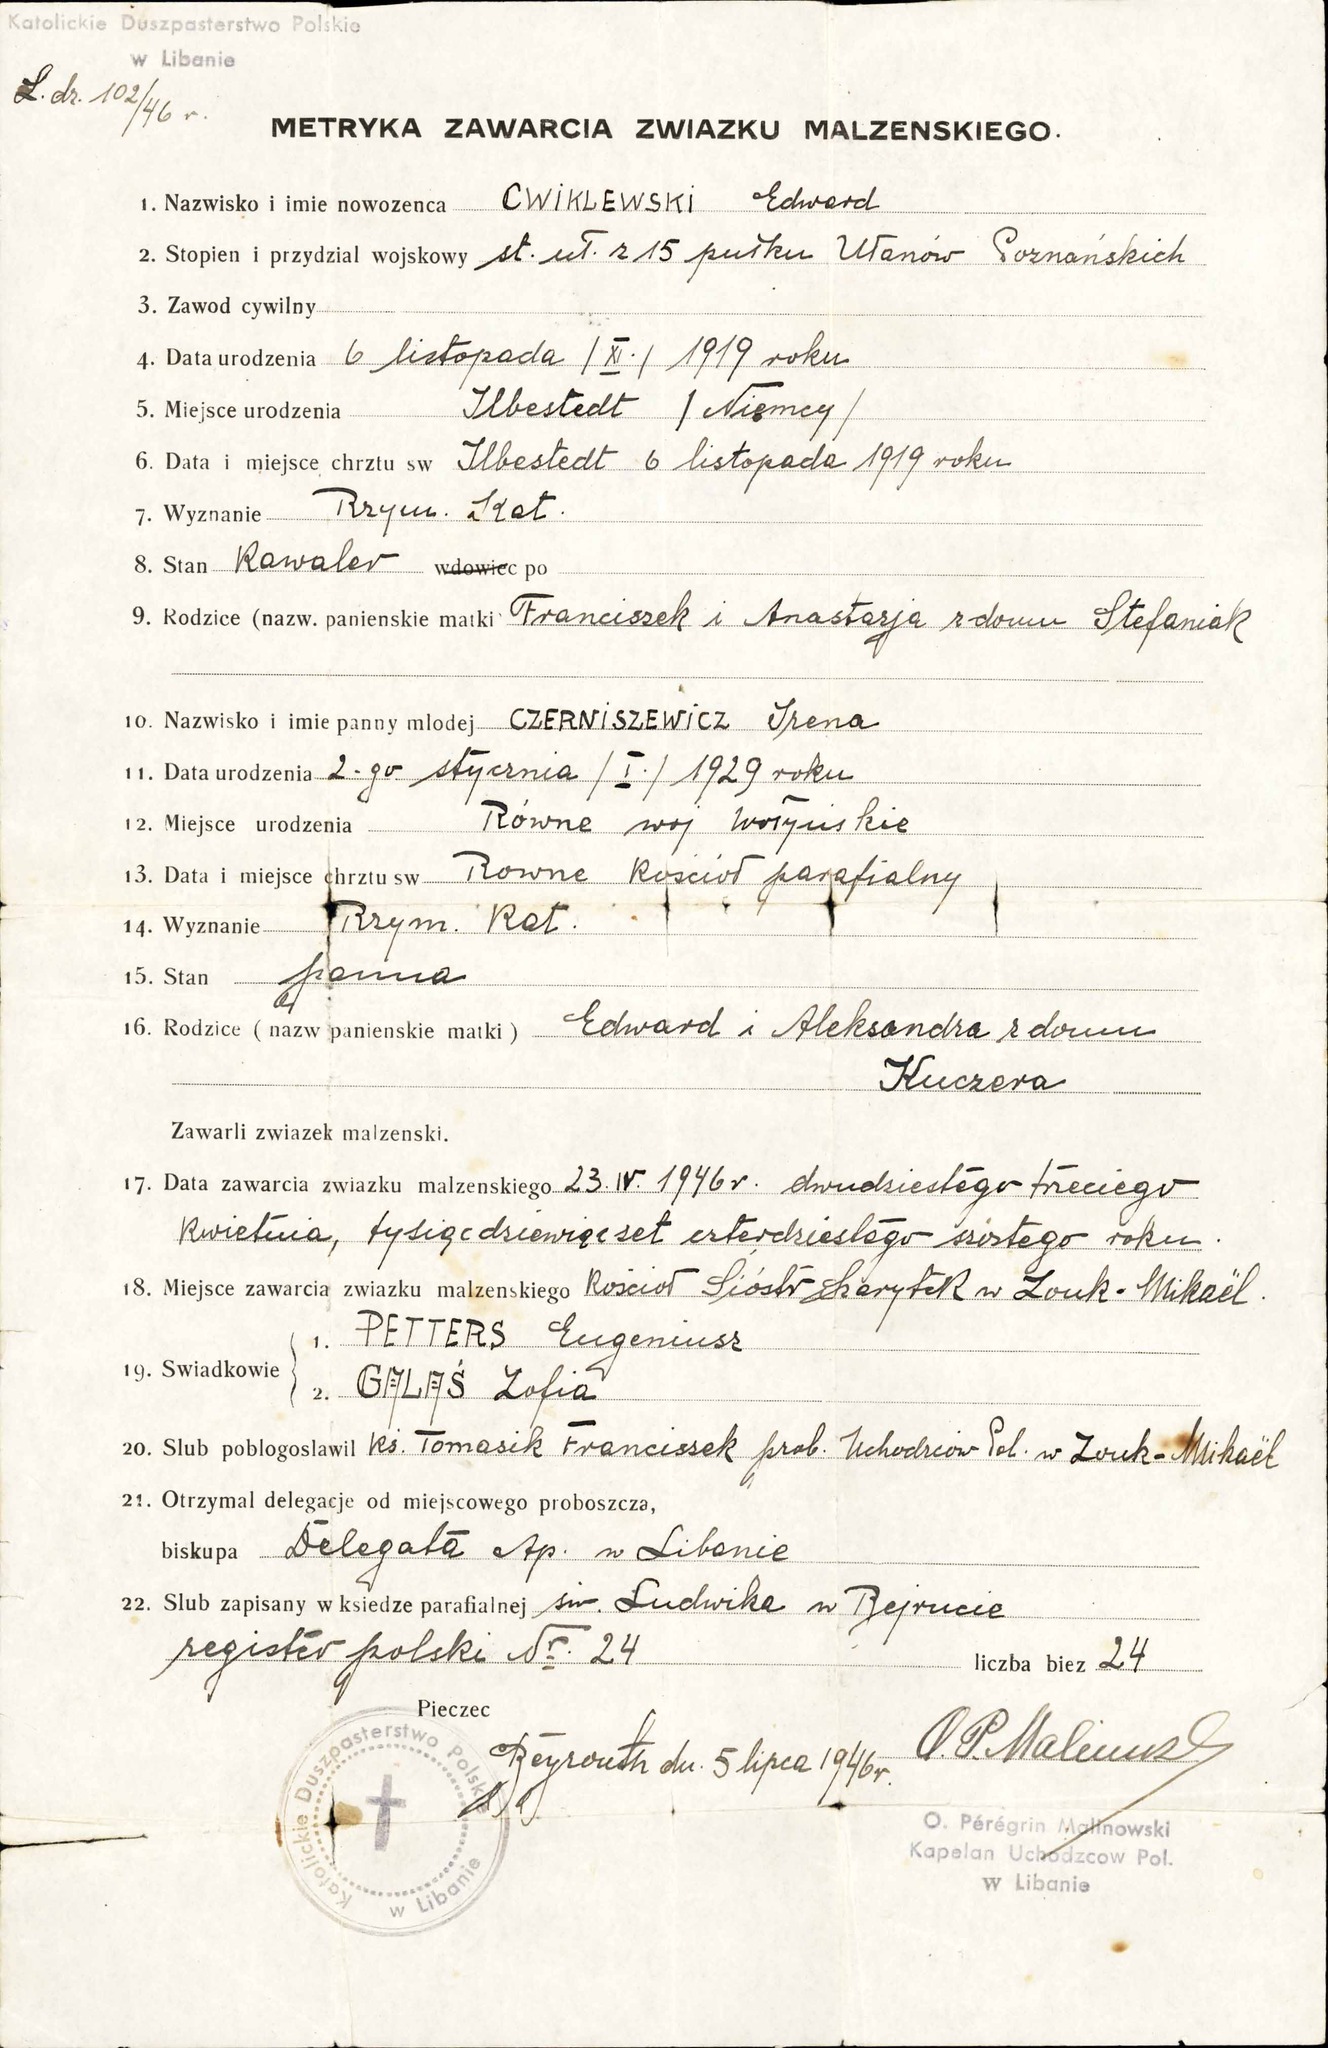 Katolickie Duszpasterstwo Polskie
w Libanie
L. dz. 102/46 r.
METRYKA ZAWARCIA ZWIAZKU MALZENSKIEGO.
1. Nazwisko i imie nowozenca CWIKLEWSKI Edward
2. Stopien i przydzial wojskowy st. uł. z 15 pułku Ułanów Poznańskich
3. Zawod cywilny
4. Data urodzenia 6 listopada /XI./ 1919 roku
5. Miejsce urodzenia Ilbestedt /Niemcy/
6. Data i miejsce chrztu sw Ilbestedt 6 listopada 1919 roku
7. Wyznanie Rzym. Kat.
8. Stan Kawaler wdowiec po
9. Rodzice (nazw. panienskie matki Franciszek i Anastazja z domu Stefaniak
10. Nazwisko i imie panny mlodej CZERNISZEWICZ Irena
11. Data urodzenia 2-go stycznia /I./ 1929 roku
12. Miejsce urodzenia Równe woj Wołyńskie
13. Data i miejsce chrztu sw Rowne Kościoł parafialny
14. Wyznanie Rzym. Kat.
15. Stan panna
16. Rodzice ( nazw panienskie matki ) Edward i Aleksandra z domu
Kuczera
Zawarli zwiazek malzenski.
17. Data zawarcia zwiazku malzenskiego 23. IV. 1946 r. dwudziestego trzeciego
kwietnia, tysiąc dziewięcset czterdziestego szóstego roku.
18. Miejsce zawarcia zwiazku malzenskiego Kościoł Sióstr Szarytek w Zouk-Mikaël.
19. Swiadkowie 1. PETTERS Eugeniusz
2. GALAŚ Zofia
20. Slub poblogoslawil Ks. Tomasik Franciszek prob. Uchodzców Pol. w Zouk-Mikaël
21. Otrzymal delegacje od miejscowego proboszcza,
biskupa Delegata Ap. w Libanie
22. Slub zapisany w ksiedze parafialnej św. Ludwika w Bejrucie
register polski Nr. 24 liczba biez 24
Pieczec
Beyrouth dn. 5 lipca 1946 r. O. P. Malinowski
Katolickie Duszpasterstwo Polskie
w Libanie
O. Pérégrin Malinowski
Kapelan Uchodzcow Pol.
w Libanie